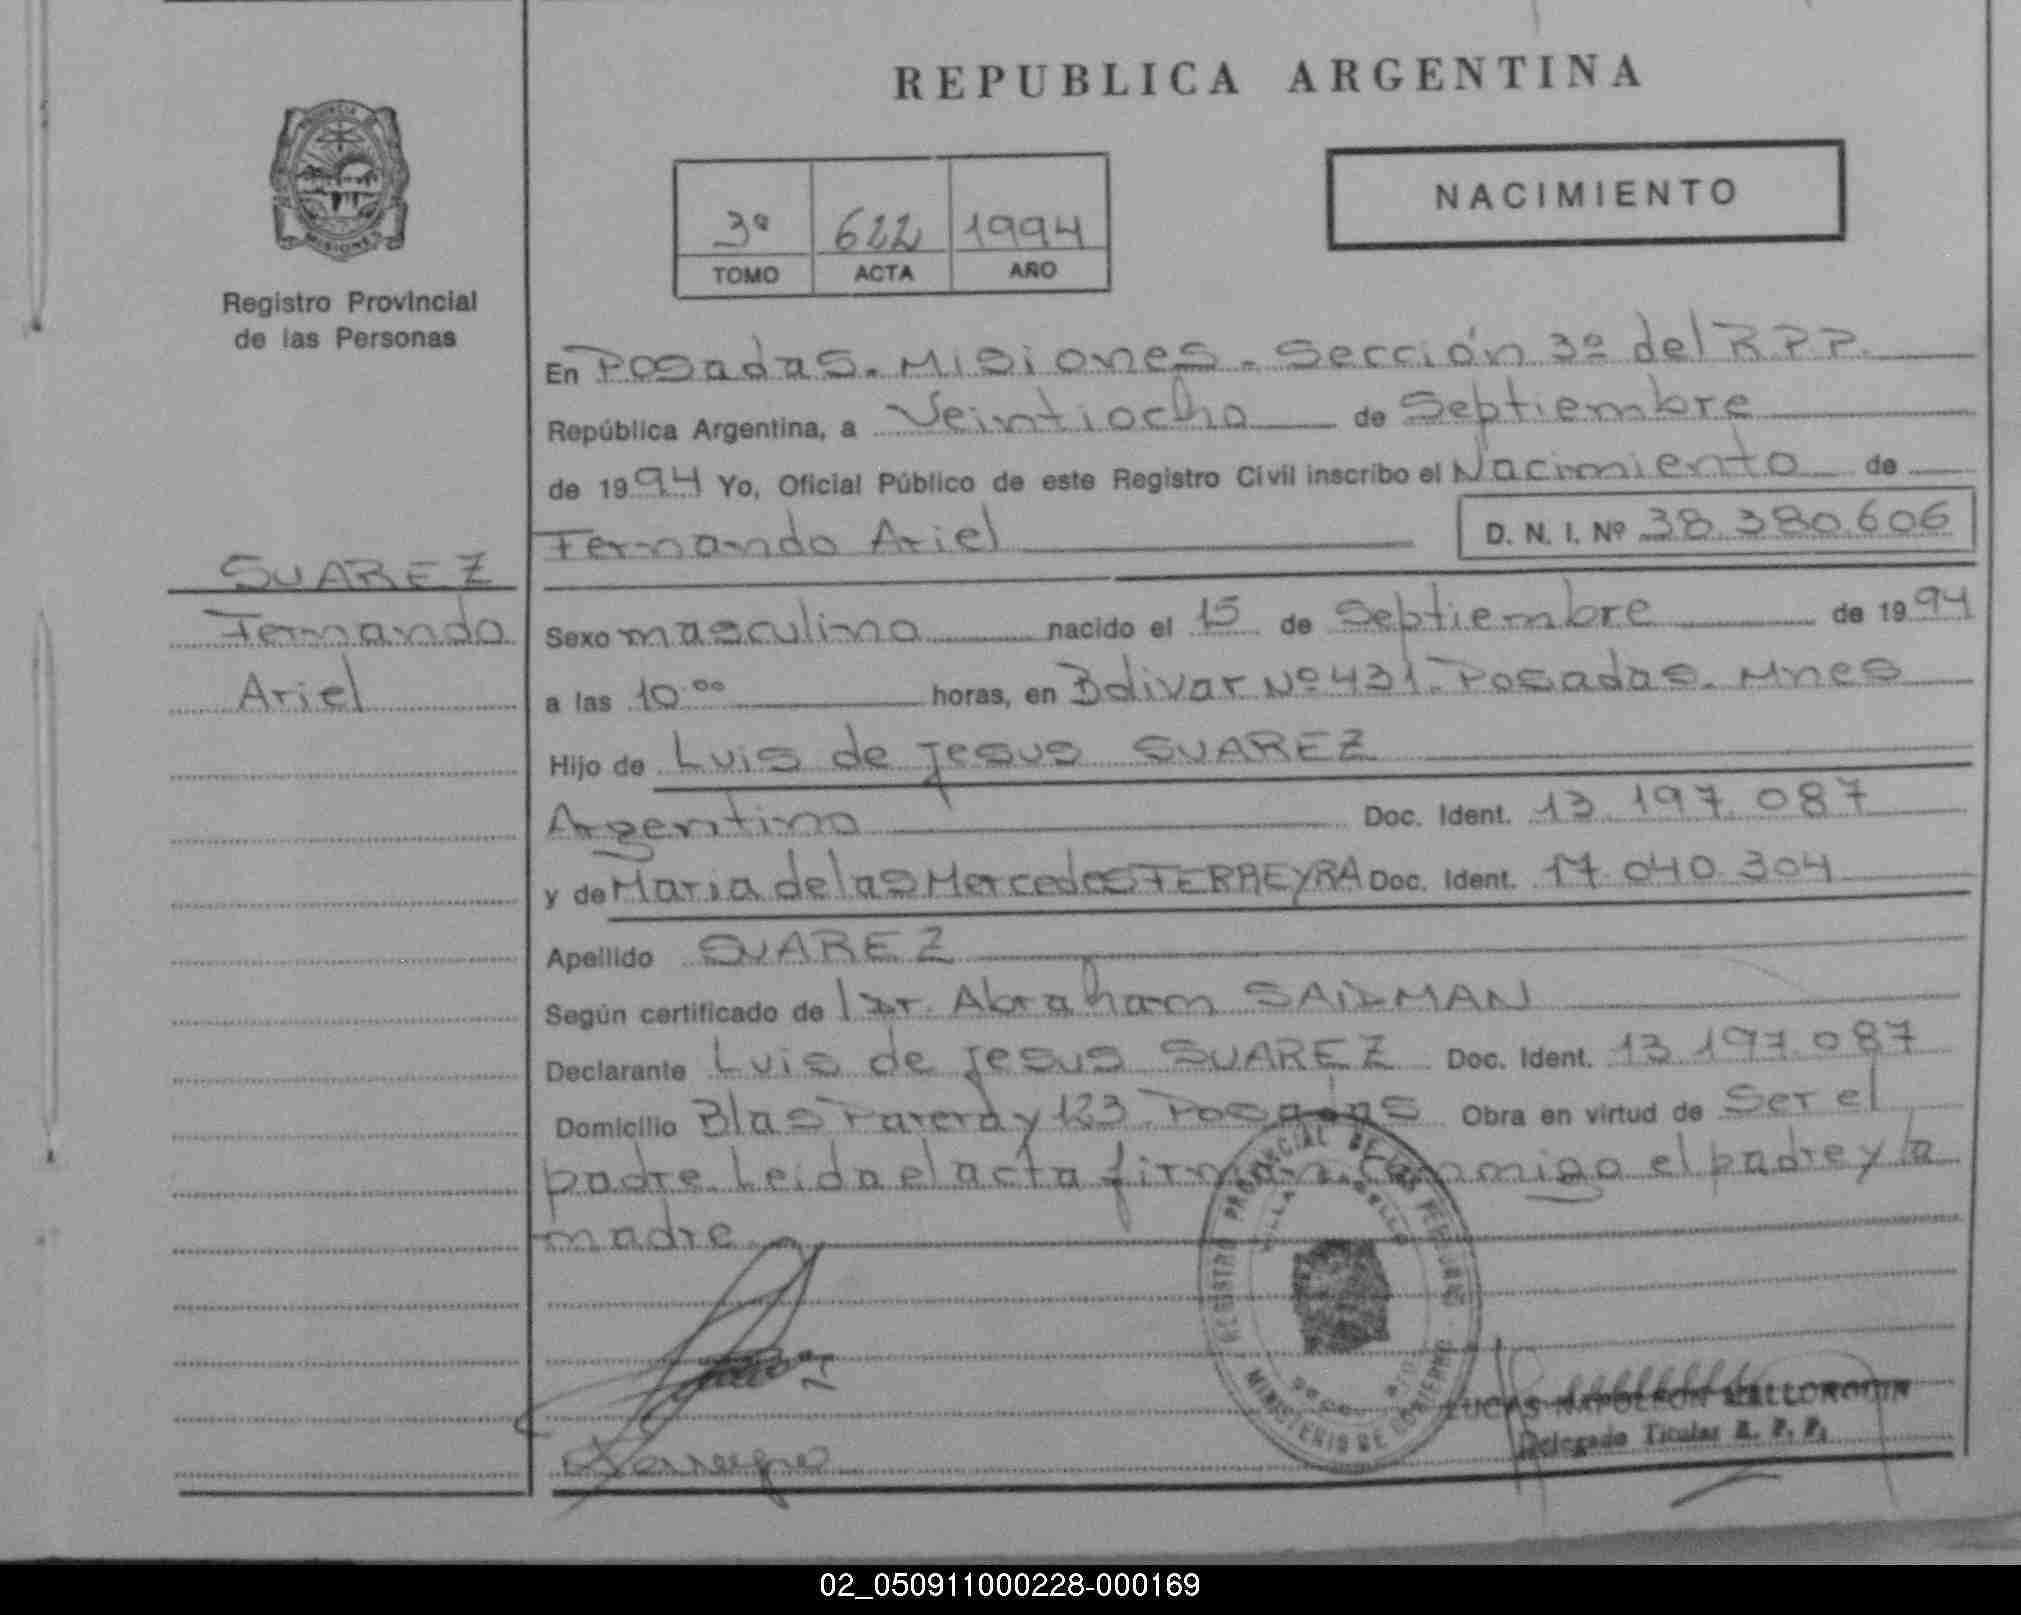 REPUBLICA ARGENTINA
NACIMIENTO
3ª 622 1994
TOMO ACTA AÑO
PROVINCIA DE
MISIONES
Registro Provincial
de las Personas
En Posadas. Misiones. Sección 3ª del R.P.P.
República Argentina, a Veintiocho de Septiembre
de 1994 Yo, Oficial Público de este Registro Civil inscribo el Nacimiento de
Fernando Ariel D. N. I. Nº 38.380.606
SUAREZ
Fernando
Ariel
Sexo masculino nacido el 15 de Septiembre de 1994
a las 10.00 horas, en Bolivar Nº 431. Posadas. Mnes
Hijo de Luis de Jesus SUAREZ
Argentino Doc. Ident. 13.197.087
y de Maria de las Mercedes FERREYRA Doc. Ident. 17.040.304
Apellido SUAREZ
Según certificado de Dr. Abraham SAIDMAN
Declarante Luis de Jesus SUAREZ Doc. Ident. 13.197.087
Domicilio Blas Parera y 123. Posadas Obra en virtud de Ser el
padre. Leida el acta firman conmigo el padre y la
madre
REGISTRO PROVINCIAL DE LAS PERSONAS
VILLA
MINISTERIO DE GOBIERNO
LUCAS NAPOLEON MALLORQUIN
Delegado Titular R. P. P.
02_050911000228-000169